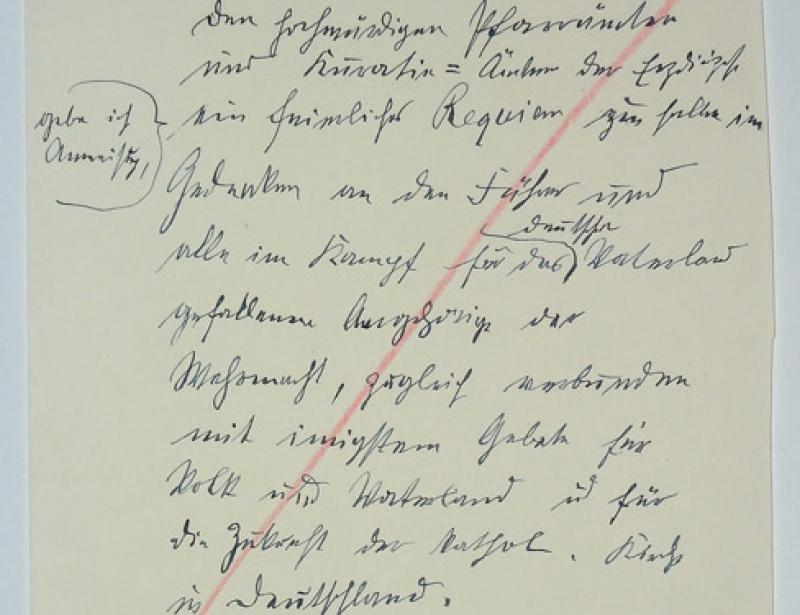 den hochwürdigen Pfarrämtern
und Kuratie= Ämtern der Erzdiözese
gebe ich
Anweisung,
ein feierliches Requiem zu halten im
Gedenken an den Führer und
deutsche
alle im Kampf für das Vaterland
gefallenen Angehörige der
Wehrmacht, zugleich verbunden
mit innigstem Gebete für
Volk und Vaterland u für
die Zukunft der kathol. Kirche
in Deutschland.